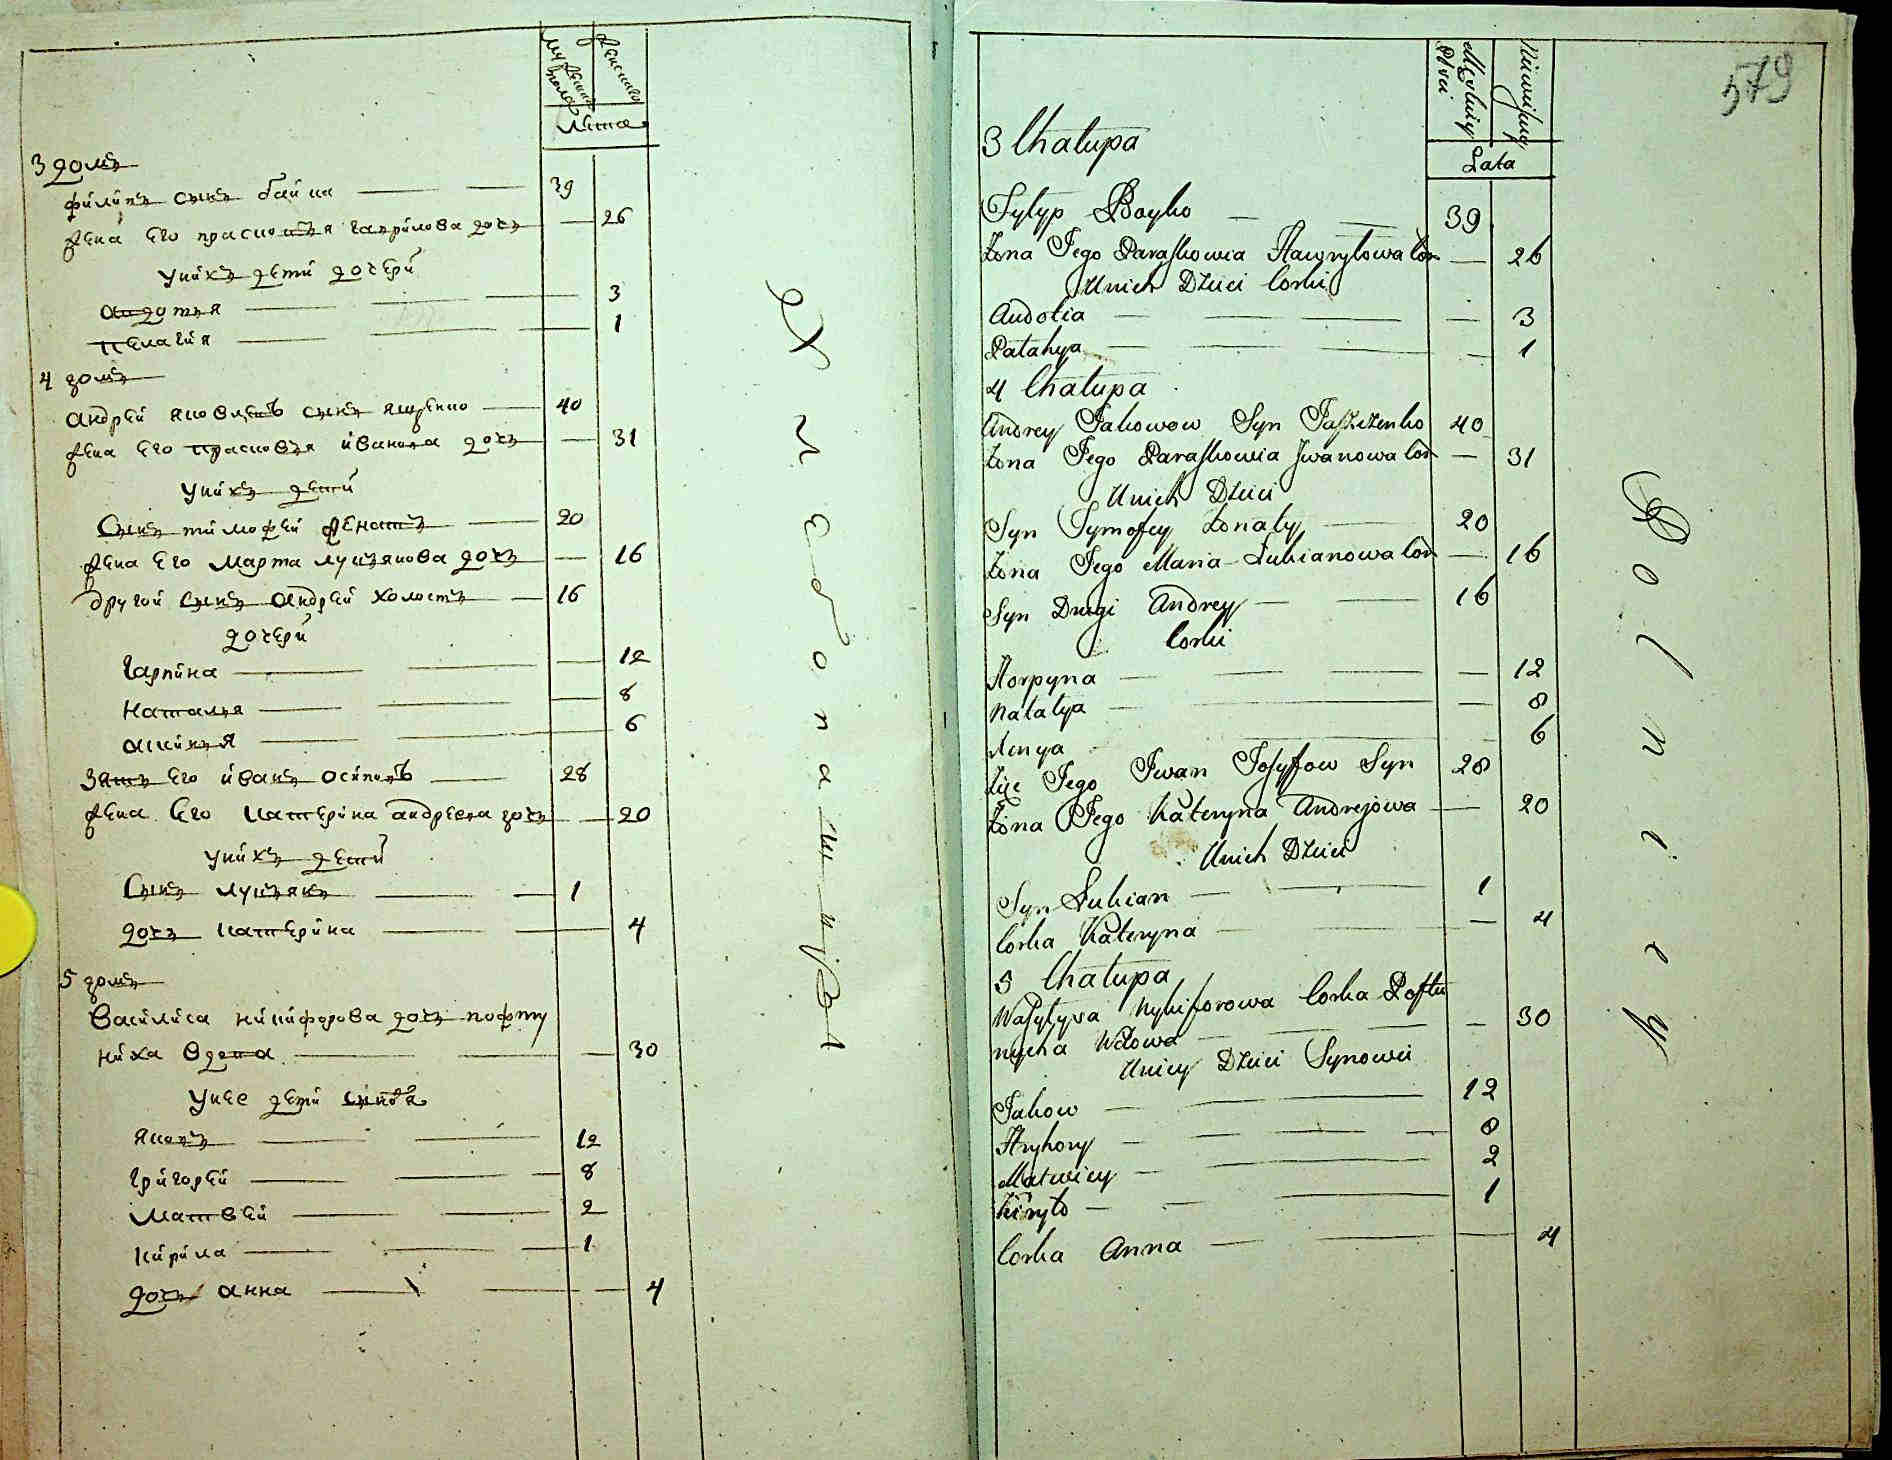 мужеска пола
женска
Лета
3 домъ
филипъ сынъ байка 39
жена его прасковья гаврилова дочь 26
у нихъ дети дочери
авдотья 3
пелагия 1
4 домъ
андрей яковлевъ сынъ ящненко 40
жена его прасковья иванова дочь 31
у нихъ дети
Сынъ тимофей женатъ 20
жена его марта лукьянова дочь 16
другой сынъ андрей холостъ 16
дочери
гарпина 12
наталья 8
аксинья 6
зять его иванъ осиповъ 28
жена его катерина андреева дочь 20
у нихъ дети
Сынъ лукьянъ 1
дочь катерина 4
5 домъ
василиса никифорова дочь пофту
ниха вдова 30
у нее дети сыновья
яковъ 12
григорей 8
матвей 2
кирила 1
дочь анна 4
579
Męskiey Płci
Niewieśćiey
Lata
3 Chałupa
Fylyp Boyko 39
Żona Jego Paraskowia Hawryłowa Cór 26
U nich Dzieci Corki
Audotia 3
Palahya 1
4 Chałupa
Andrey Jakowow Syn Jaszczenko 40
Żona Jego Paraskowia Jwanowa Cór 31
U nich Dzieci
Syn Tymofey Żonaty 20
Żona Jego Maria Lukianowa Cór 16
Syn Drugi Andrey 16
Corki
Horpyna 12
Natalya 8
Xenya 6
Zięc Jego Jwan Josyffow Syn 28
Żona Jego Kateryna Andrejowa 20
U nich Dzieci
Syn Lukian 1
Corka Kateryna 4
5 Chałupa
Wasylysa Nykiforowa Corka Poftu
nycha Wdowa 30
U niey Dzieci Synowie
Jakow 12
Hryhory 8
Matwiey 2
Kiryło 1
Corka Anna 4